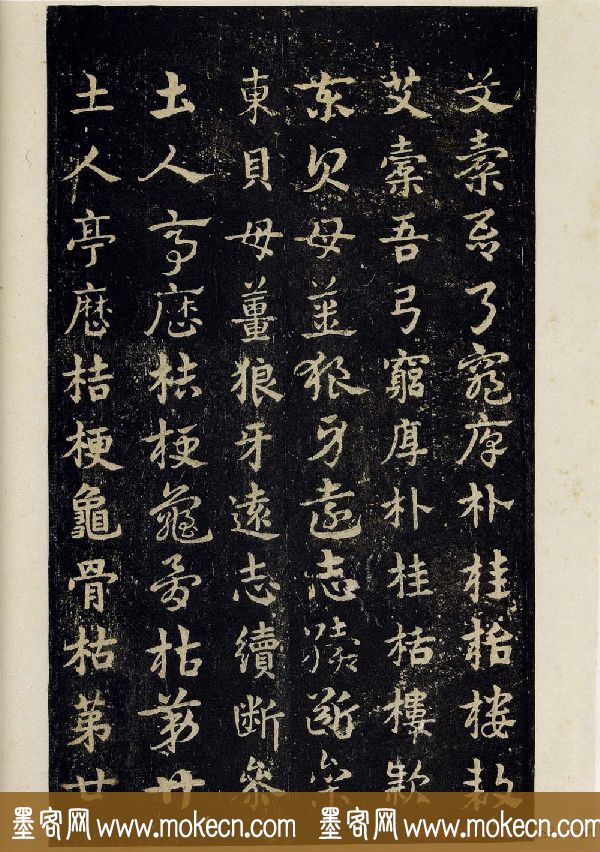 艾橐吾弓窮厚朴桂栝樓款
艾橐吾弓窮厚朴桂栝樓款
東貝母薑狼牙遠志續斷參
東貝母薑狼牙遠志續斷參
土人亭歷桔梗龜骨枯第廿
土人亭歷桔梗龜骨枯第廿
墨客网 www.mokecn.com 墨客网 www.mokecn.com